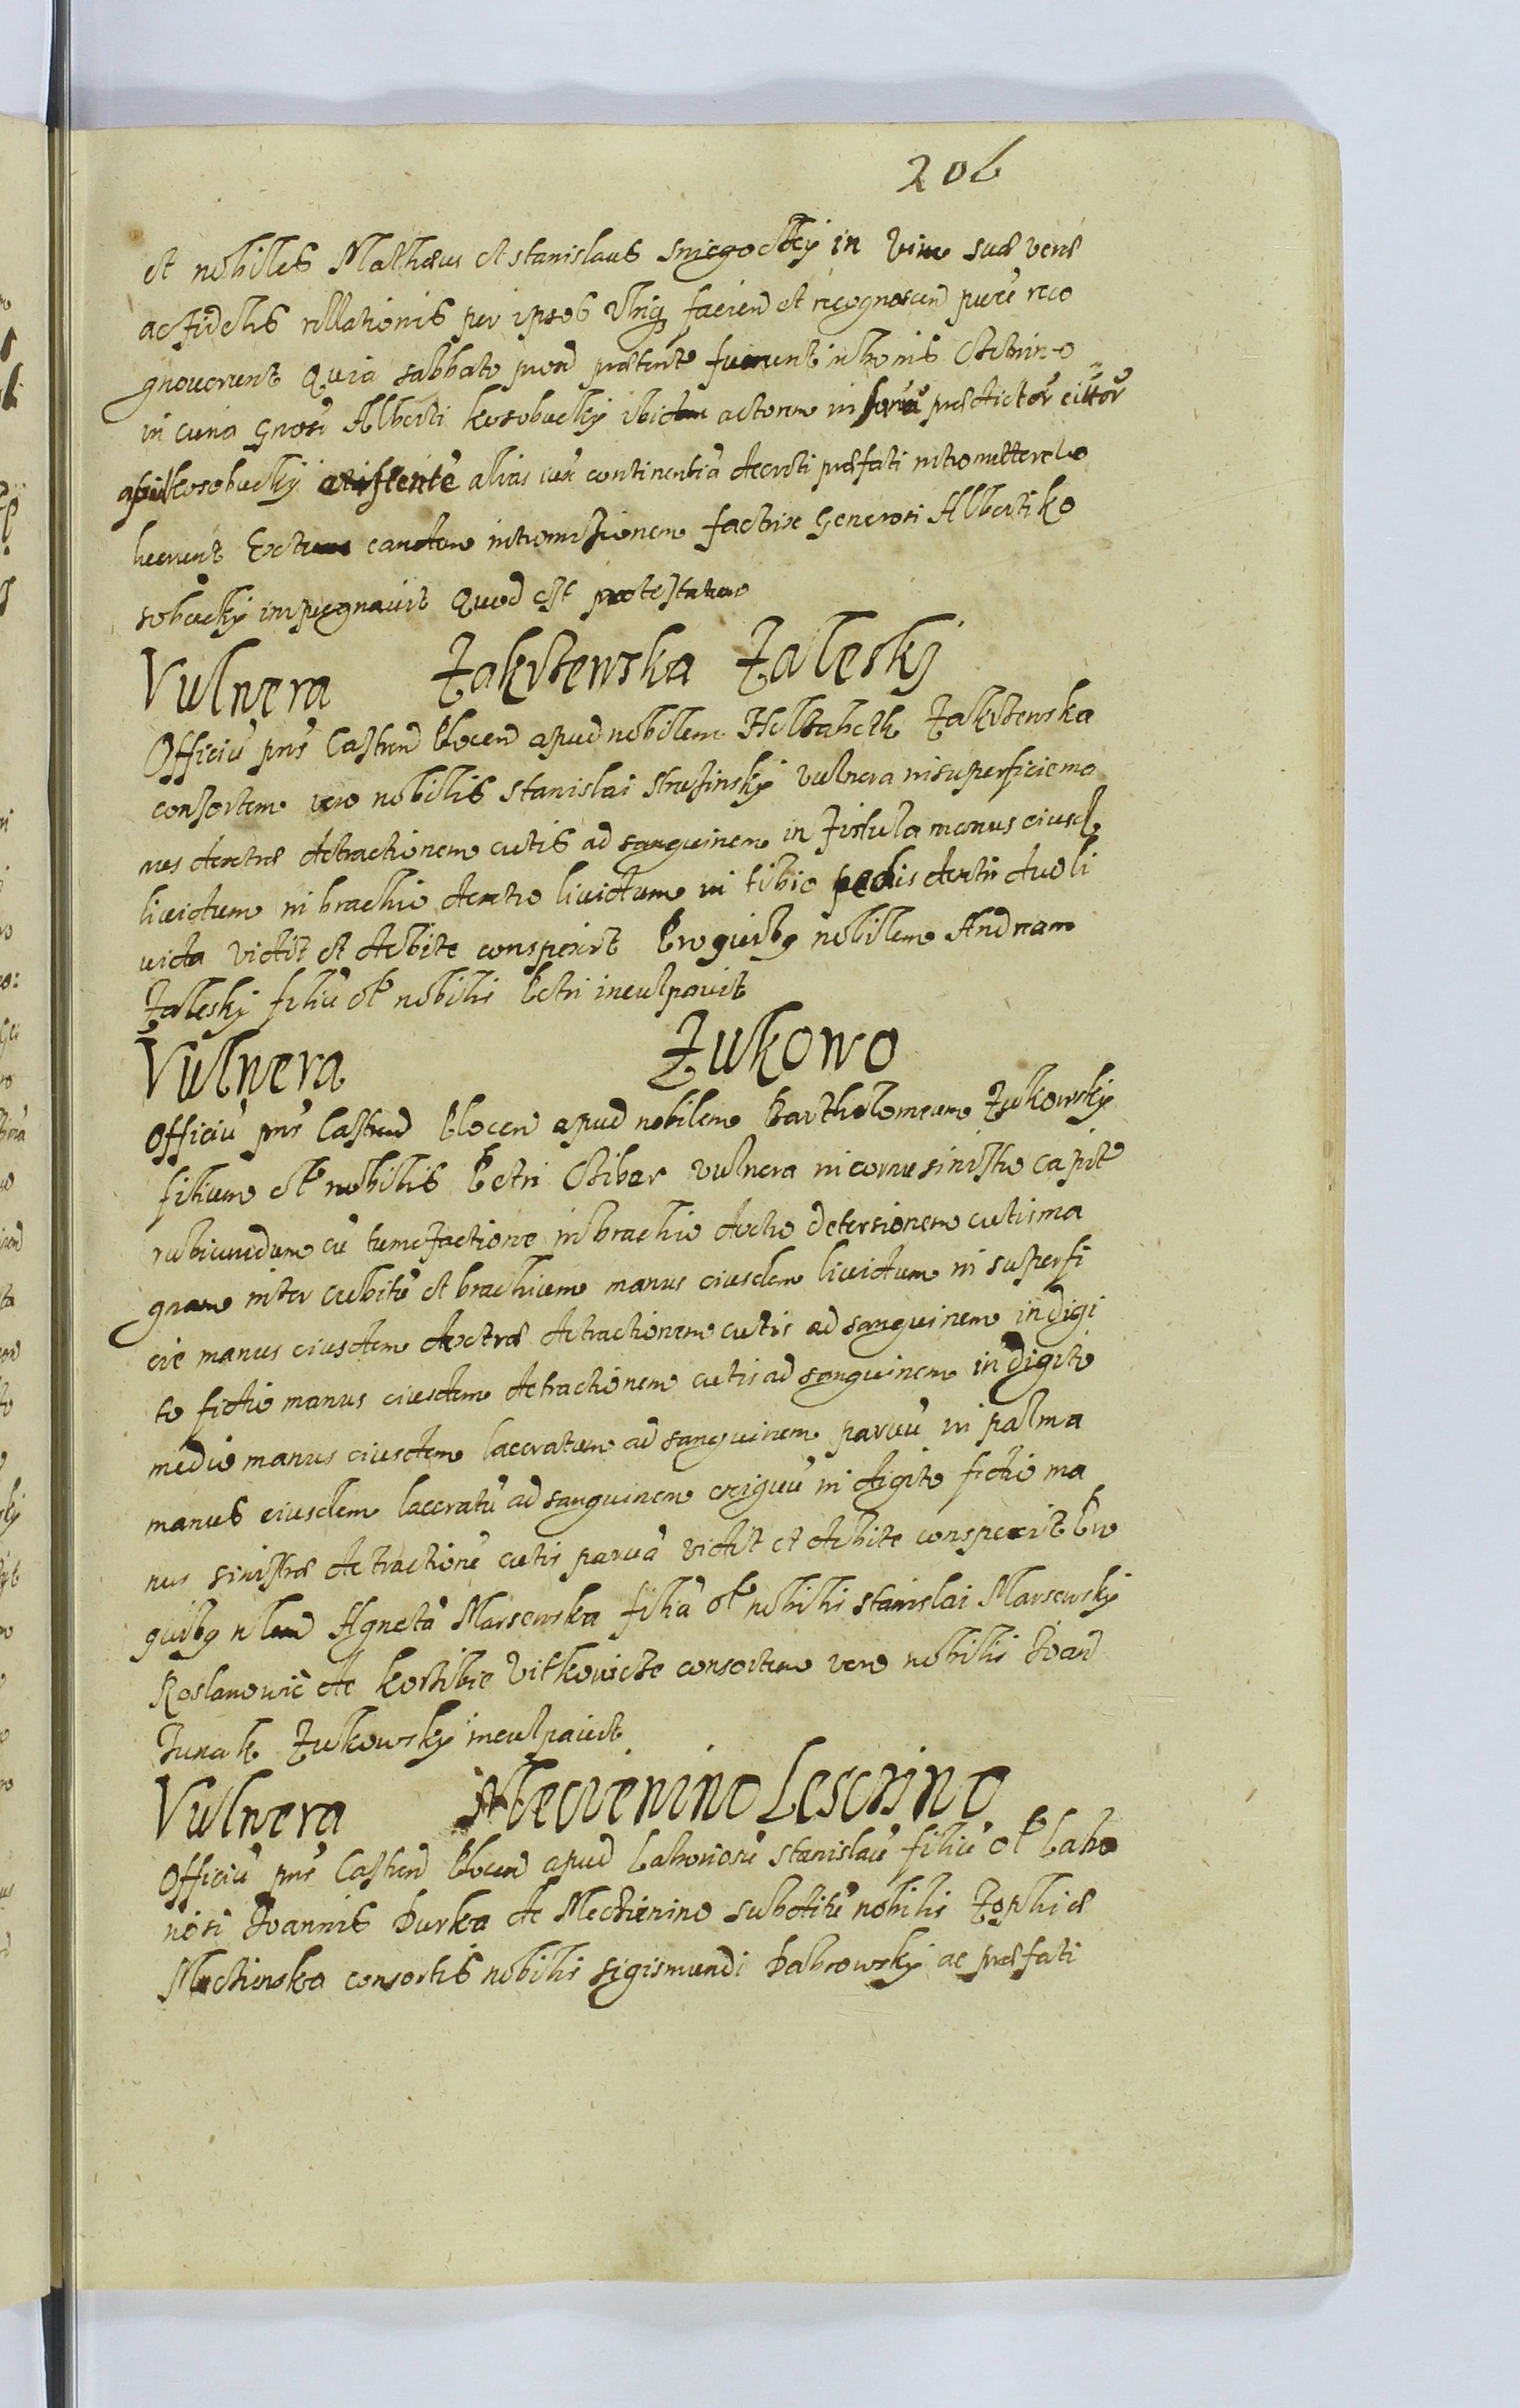 206
et nobiles Mathæus et Stanislaus Sniegoczky in vim suæ veræ
ac fidelis rellationis per ipsos faciend et recognoscend pure reco
gnoverunt Quia sabbato præterito fuerunt in bonis
in curia Gnosi Alberti Kosobuczky actorem in prædictor
Kosobucky alias iux continentia decreti præfati intromittere vo
luerunt eandem intromissionem factor Generosi Alberti Ko
sobucky impugnavit Quod est protestatum
Vulnera Zakrzewska Zalesky
Officiũ pns Castren Plocen apud nobilem Helzabeth Zakrzewska
consortem vero nobilis Stanislai vulnera in superficie ma
nus dextræ detractionem cutis ad sanguinem in fistula manus eiusd
lividum in brachio dextro lividum in tibia pedis dextri duo li
vida vidit et debite conspexit Pro quibg nobilem Andream
Zalesky filiũ ol nobilis Petri inculpavit
Vulnera Zukowo
Officiũ pns Castren Plocen apud nobilem Bartholomeum Zukowsky
filium ol nobilis Petri vulnera in cornu sinistro capite
rubicundum cũ tumefactione in brachio dextro detersionem cutis ma
gnam inter cubitũ et brachium manus eiusdem lividum in superfi
cie manus eiusdem dextræ detractionem cutis ad sanguinem in digi
to fictio manus eiusdem detractionem cutis ad sanguinem in digito
medio manus eiusdem laceratum ad sanguinem parvũ in palma
manus eiusdem laceratũ ad sanguinem exiguũ in digito fictio ma
nus sinistræ detractionẽ cutis parvã vidit et debite conspexit Pro
quibg Agnetã Marsewska filiã ol nobilis Stanislai Marsewsky
Roslanowic de Kosthibie Vitkowicze consortem vero nobilis Joan
Junak Zukowsky inculpavit
Vulnera Mecvenino Lesczyno
Officiũ pns Castren Plocen apud Laboriosũ Stanislaũ filiũ ol Labo
riosi Joannis Durka de Meczienino subditũ nobilis Zophiæ
Mecziewska consortis nobilis Sigismundi Dabrowsky ac præfati